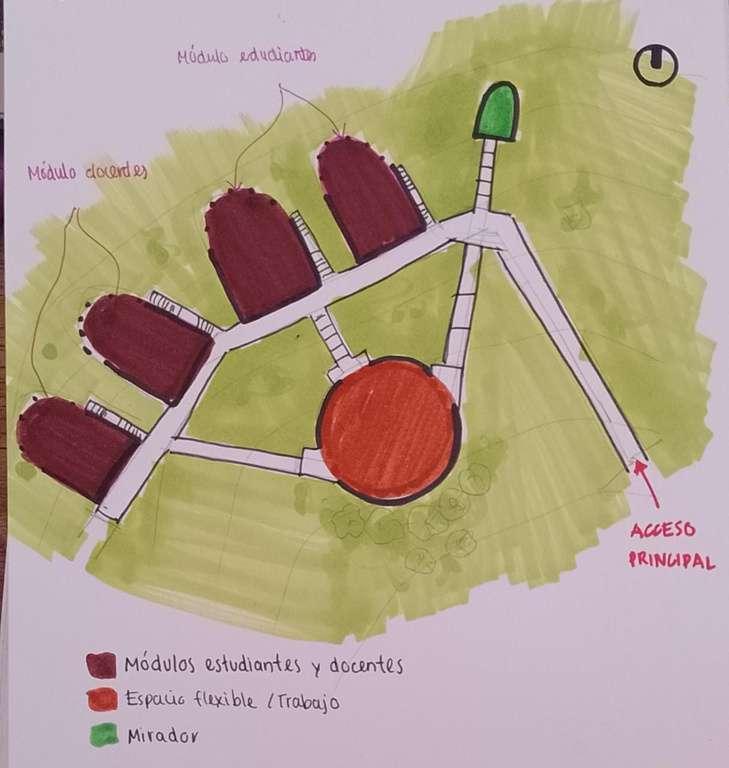 Módulo edudiantes
Módulo docentes
ACCESO
PRINCIPAL
Módulos estudiantes y docentes
Espacio flexible / Trabajo
Mirador